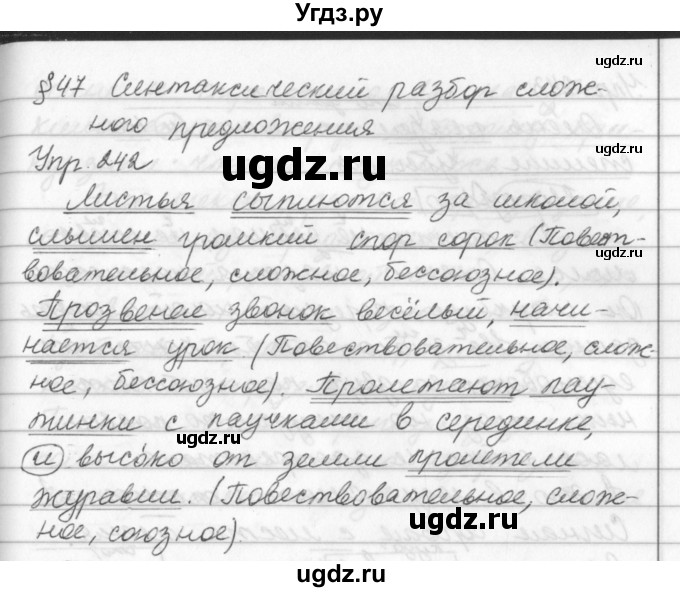 Угдз.ру
ugdz.ru
§47 Синтаксический разбор слож-
ного предложения
ugdz.ru
Упр. 242
ugdz.ru
Листья сыплются за школой,
слышен громкий спор сорок (Повест-
вовательное, сложное, бессоюзное).
ugdz.ru
Прозвенел звонок весёлый, начи-
нается урок. (Повествовательное, слож-
ugdz.ru
ное, бессоюзное). Пролетают пау-
тинки с паучками в серединке,
ugdz.ru
и высо́ко от земли пролетели
журавли. (Повествовательное, слож-
ное, союзное).
ugdz.ru
ugdz.ru
ugdz.ru